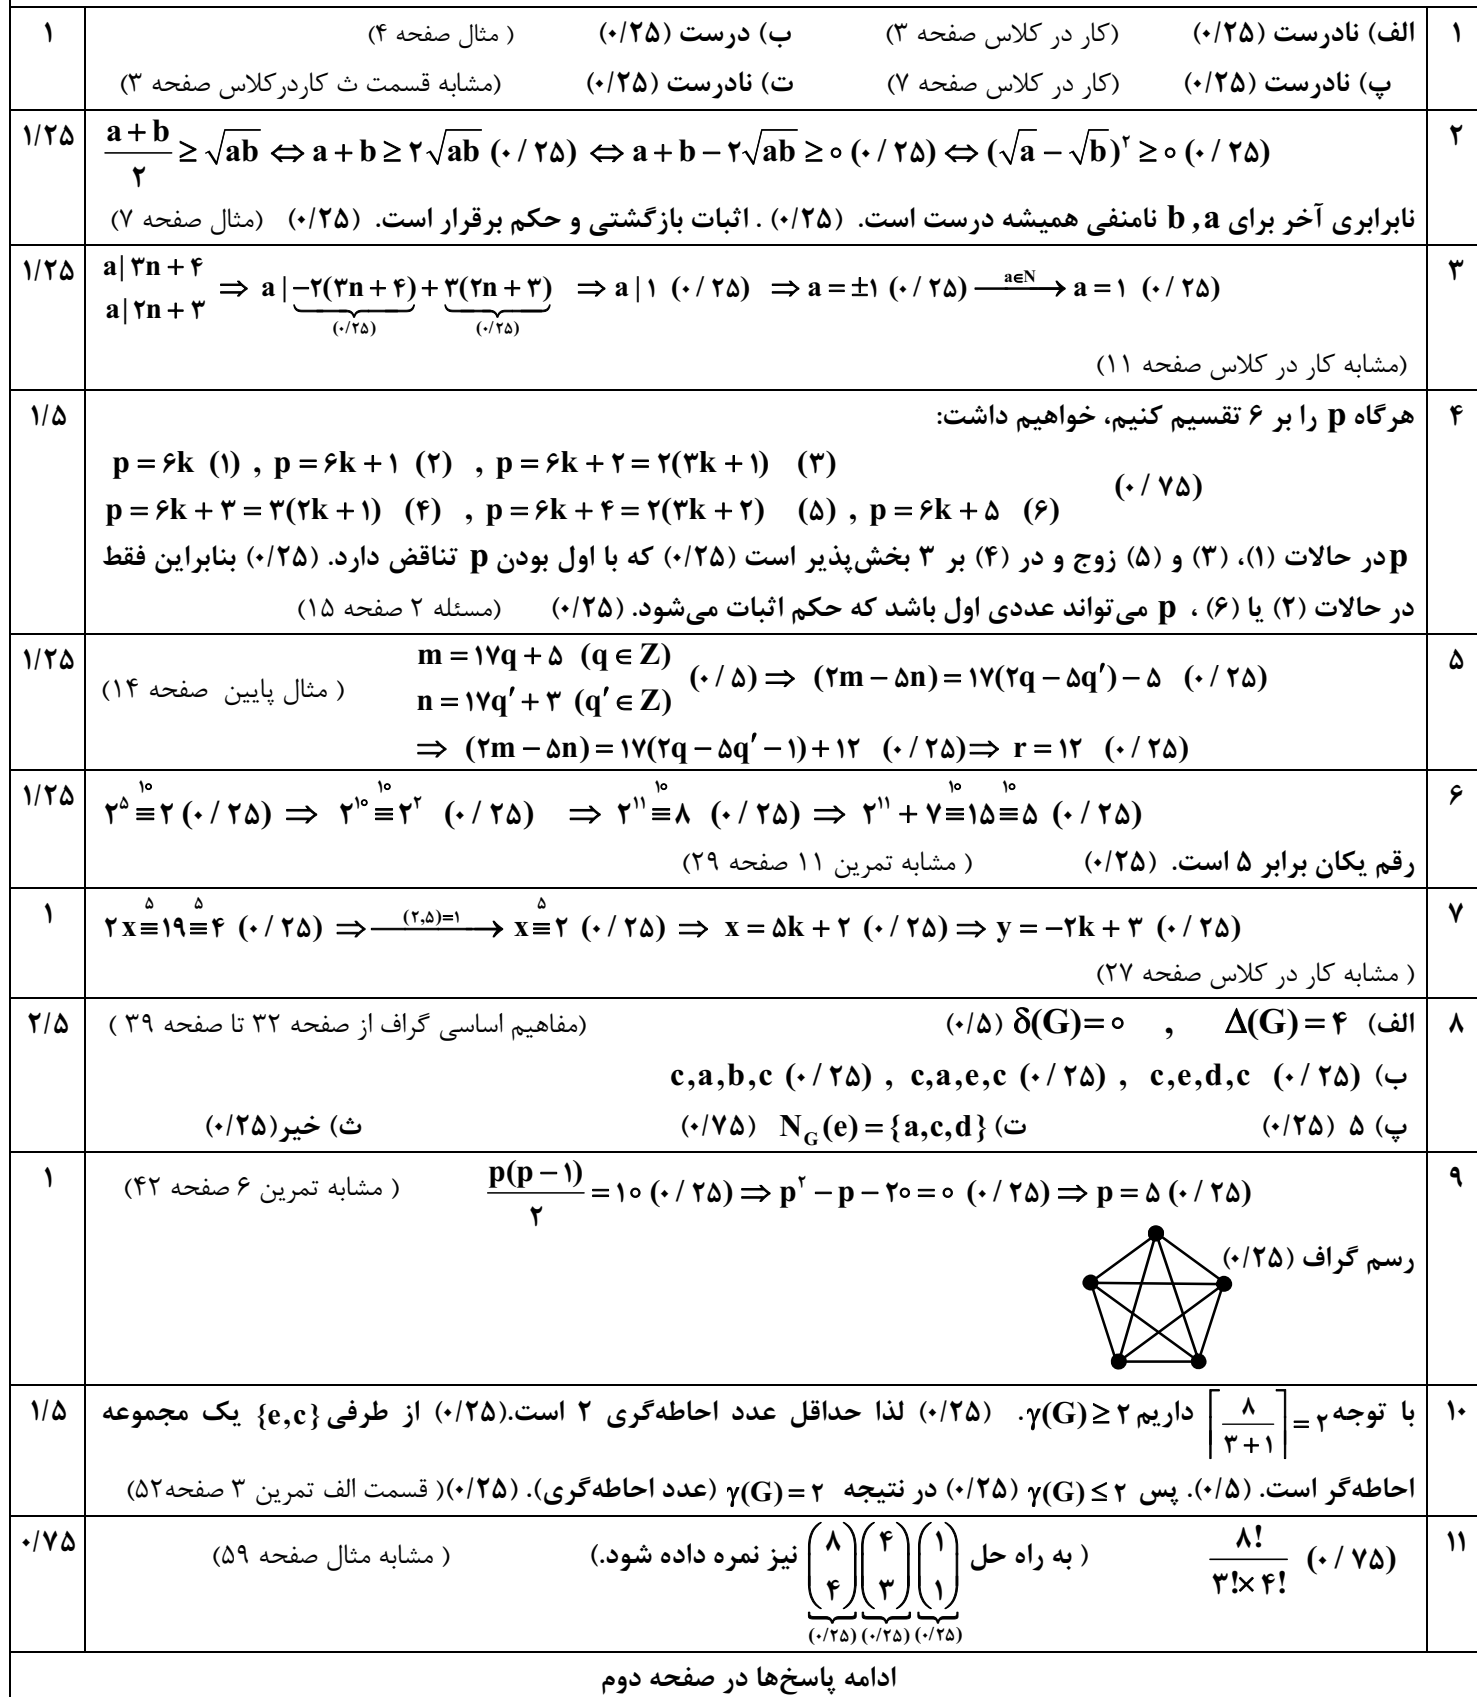 ۱ الف) نادرست (۰/۲۵) (کار در کلاس صفحه ۳) ب) درست (۰/۲۵) ( مثال صفحه ۴) ۱
پ) نادرست (۰/۲۵) (کار در کلاس صفحه ۷) ت) نادرست (۰/۲۵) (مشابه قسمت ث کاردرکلاس صفحه ۳)
۲ (a+b)/۲ ≥ √ab ⇔ a + b ≥ ۲√ab (۰/۲۵) ⇔ a + b − ۲√ab ≥ ۰ (۰/۲۵) ⇔ (√a − √b)^۲ ≥ ۰ (۰/۲۵) ۱/۲۵
نابرابری آخر برای b , a نامنفی همیشه درست است. (۰/۲۵) . اثبات بازگشتی و حکم برقرار است. (۰/۲۵) (مثال صفحه ۷)
۳ a | ۳n + ۴ ۱/۲۵
a | ۲n + ۳ ⇒ a | −۲(۳n + ۴) (۰/۲۵) + ۳(۲n + ۳) (۰/۲۵) ⇒ a | ۱ (۰/۲۵) ⇒ a = ±۱ (۰/۲۵) —a∈N→ a = ۱ (۰/۲۵)
(مشابه کار در کلاس صفحه ۱۱)
۴ هرگاه p را بر ۶ تقسیم کنیم، خواهیم داشت: ۱/۵
p = ۶k (۱) , p = ۶k + ۱ (۲) , p = ۶k + ۲ = ۲(۳k + ۱) (۳)
p = ۶k + ۳ = ۳(۲k + ۱) (۴) , p = ۶k + ۴ = ۲(۳k + ۲) (۵) , p = ۶k + ۵ (۶) (۰/۷۵)
p در حالات (۱)، (۳) و (۵) زوج و در (۴) بر ۳ بخش‌پذیر است (۰/۲۵) که با اول بودن p تناقض دارد. (۰/۲۵) بنابراین فقط
در حالات (۲) یا (۶) ، p می‌تواند عددی اول باشد که حکم اثبات می‌شود. (۰/۲۵) (مسئله ۲ صفحه ۱۵)
۵ m = ۱۷q + ۵ (q ∈ Z) ۱/۲۵
n = ۱۷q′ + ۳ (q′ ∈ Z) (۰/۵) ⇒ (۲m − ۵n) = ۱۷(۲q − ۵q′) − ۵ (۰/۲۵) ( مثال پایین صفحه ۱۴)
⇒ (۲m − ۵n) = ۱۷(۲q − ۵q′ − ۱) + ۱۲ (۰/۲۵) ⇒ r = ۱۲ (۰/۲۵)
۶ ۲^۵ ≡^۱۰ ۲ (۰/۲۵) ⇒ ۲^۱۰ ≡^۱۰ ۲^۲ (۰/۲۵) ⇒ ۲^۱۱ ≡^۱۰ ۸ (۰/۲۵) ⇒ ۲^۱۱ + ۷ ≡^۱۰ ۱۵ ≡^۱۰ ۵ (۰/۲۵) ۱/۲۵
رقم یکان برابر ۵ است. (۰/۲۵) ( مشابه تمرین ۱۱ صفحه ۲۹)
۷ ۲x ≡^۵ ۱۹ ≡^۵ ۴ (۰/۲۵) ⇒ —(۲,۵)=۱→ x ≡^۵ ۲ (۰/۲۵) ⇒ x = ۵k + ۲ (۰/۲۵) ⇒ y = −۲k + ۳ (۰/۲۵) ۱
( مشابه کار در کلاس صفحه ۲۷)
۸ الف) Δ(G) = ۴ , δ(G) = ۰ (۰/۵) (مفاهیم اساسی گراف از صفحه ۳۲ تا صفحه ۳۹ ) ۲/۵
ب) c,a,b,c (۰/۲۵) , c,a,e,c (۰/۲۵) , c,e,d,c (۰/۲۵)
پ) ۵ (۰/۲۵) ت) N_G(e) = {a,c,d} (۰/۷۵) ث) خیر(۰/۲۵)
۹ p(p − ۱)/۲ = ۱۰ (۰/۲۵) ⇒ p^۲ − p − ۲۰ = ۰ (۰/۲۵) ⇒ p = ۵ (۰/۲۵) ( مشابه تمرین ۶ صفحه ۴۲) ۱
رسم گراف (۰/۲۵)
۱۰ با توجه ⌈۸/(۳+۱)⌉ = ۲ داریم γ(G) ≥ ۲. (۰/۲۵) لذا حداقل عدد احاطه‌گری ۲ است.(۰/۲۵) از طرفی {e,c} یک مجموعه ۱/۵
احاطه‌گر است. (۰/۵). پس γ(G) ≤ ۲ (۰/۲۵) در نتیجه γ(G) = ۲ (عدد احاطه‌گری). (۰/۲۵)( قسمت الف تمرین ۳ صفحه۵۲)
۱۱ ۸!/(۳!×۴!) (۰/۷۵) ( به راه حل (۸ ۴) (۰/۲۵) (۴ ۳) (۰/۲۵) (۱ ۱) (۰/۲۵) نیز نمره داده شود.) ( مشابه مثال صفحه ۵۹) ۰/۷۵
ادامه پاسخ‌ها در صفحه دوم